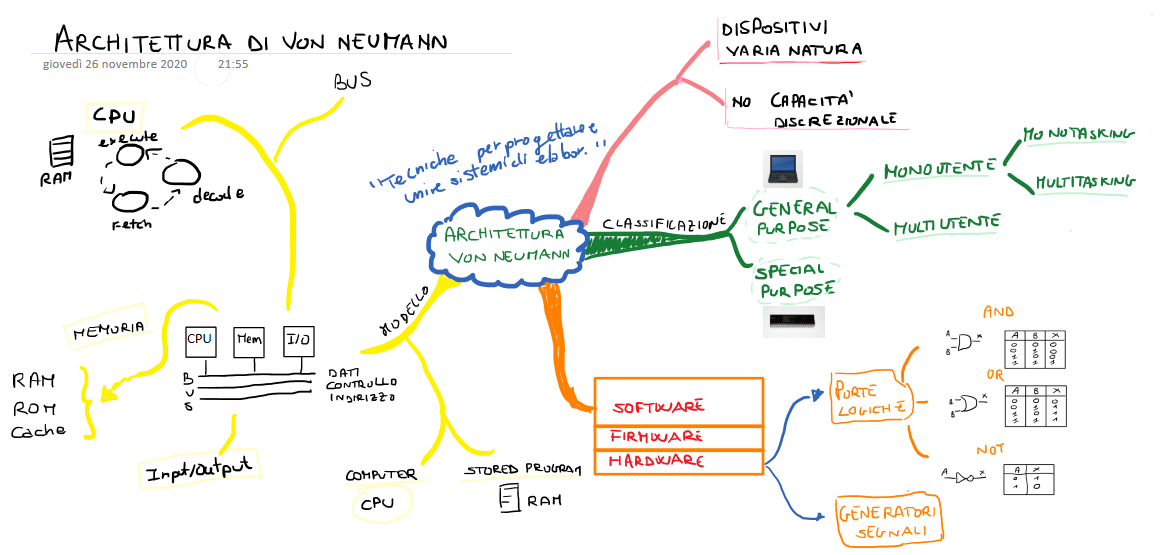 ARCHITETTURA DI VON NEUMANN
giovedì 26 novembre 2020 21:55
BUS
CPU
execute
RAM
decode
Fetch
MEMORIA
RAM
ROM
Cache
CPU
Mem
I/O
B
U
S
DATI
CONTROLLO
INDIRIZZO
Input/Output
"Tecniche per progettare e
unire sistemi di elabor."
ARCHITETTURA
VON NEUMANN
MODELLO
COMPUTER
CPU
STORED PROGRAM
RAM
DISPOSITIVI
VARIA NATURA
NO CAPACITA'
DISCREZIONALE
CLASSIFICAZIONE
GENERAL
PURPOSE
MONOUTENTE
MONOTASKING
MULTITASKING
MULTIUTENTE
SPECIAL
PURPOSE
SOFTWARE
FIRMWARE
HARDWARE
PORTE
LOGICHE
GENERATORI
SEGNALI
AND
A
B
X
A B X
0 0 0
0 1 0
1 0 0
1 1 1
OR
A
B
X
A B X
0 0 0
0 1 1
1 0 1
1 1 1
NOT
A
X
A X
0 1
1 0